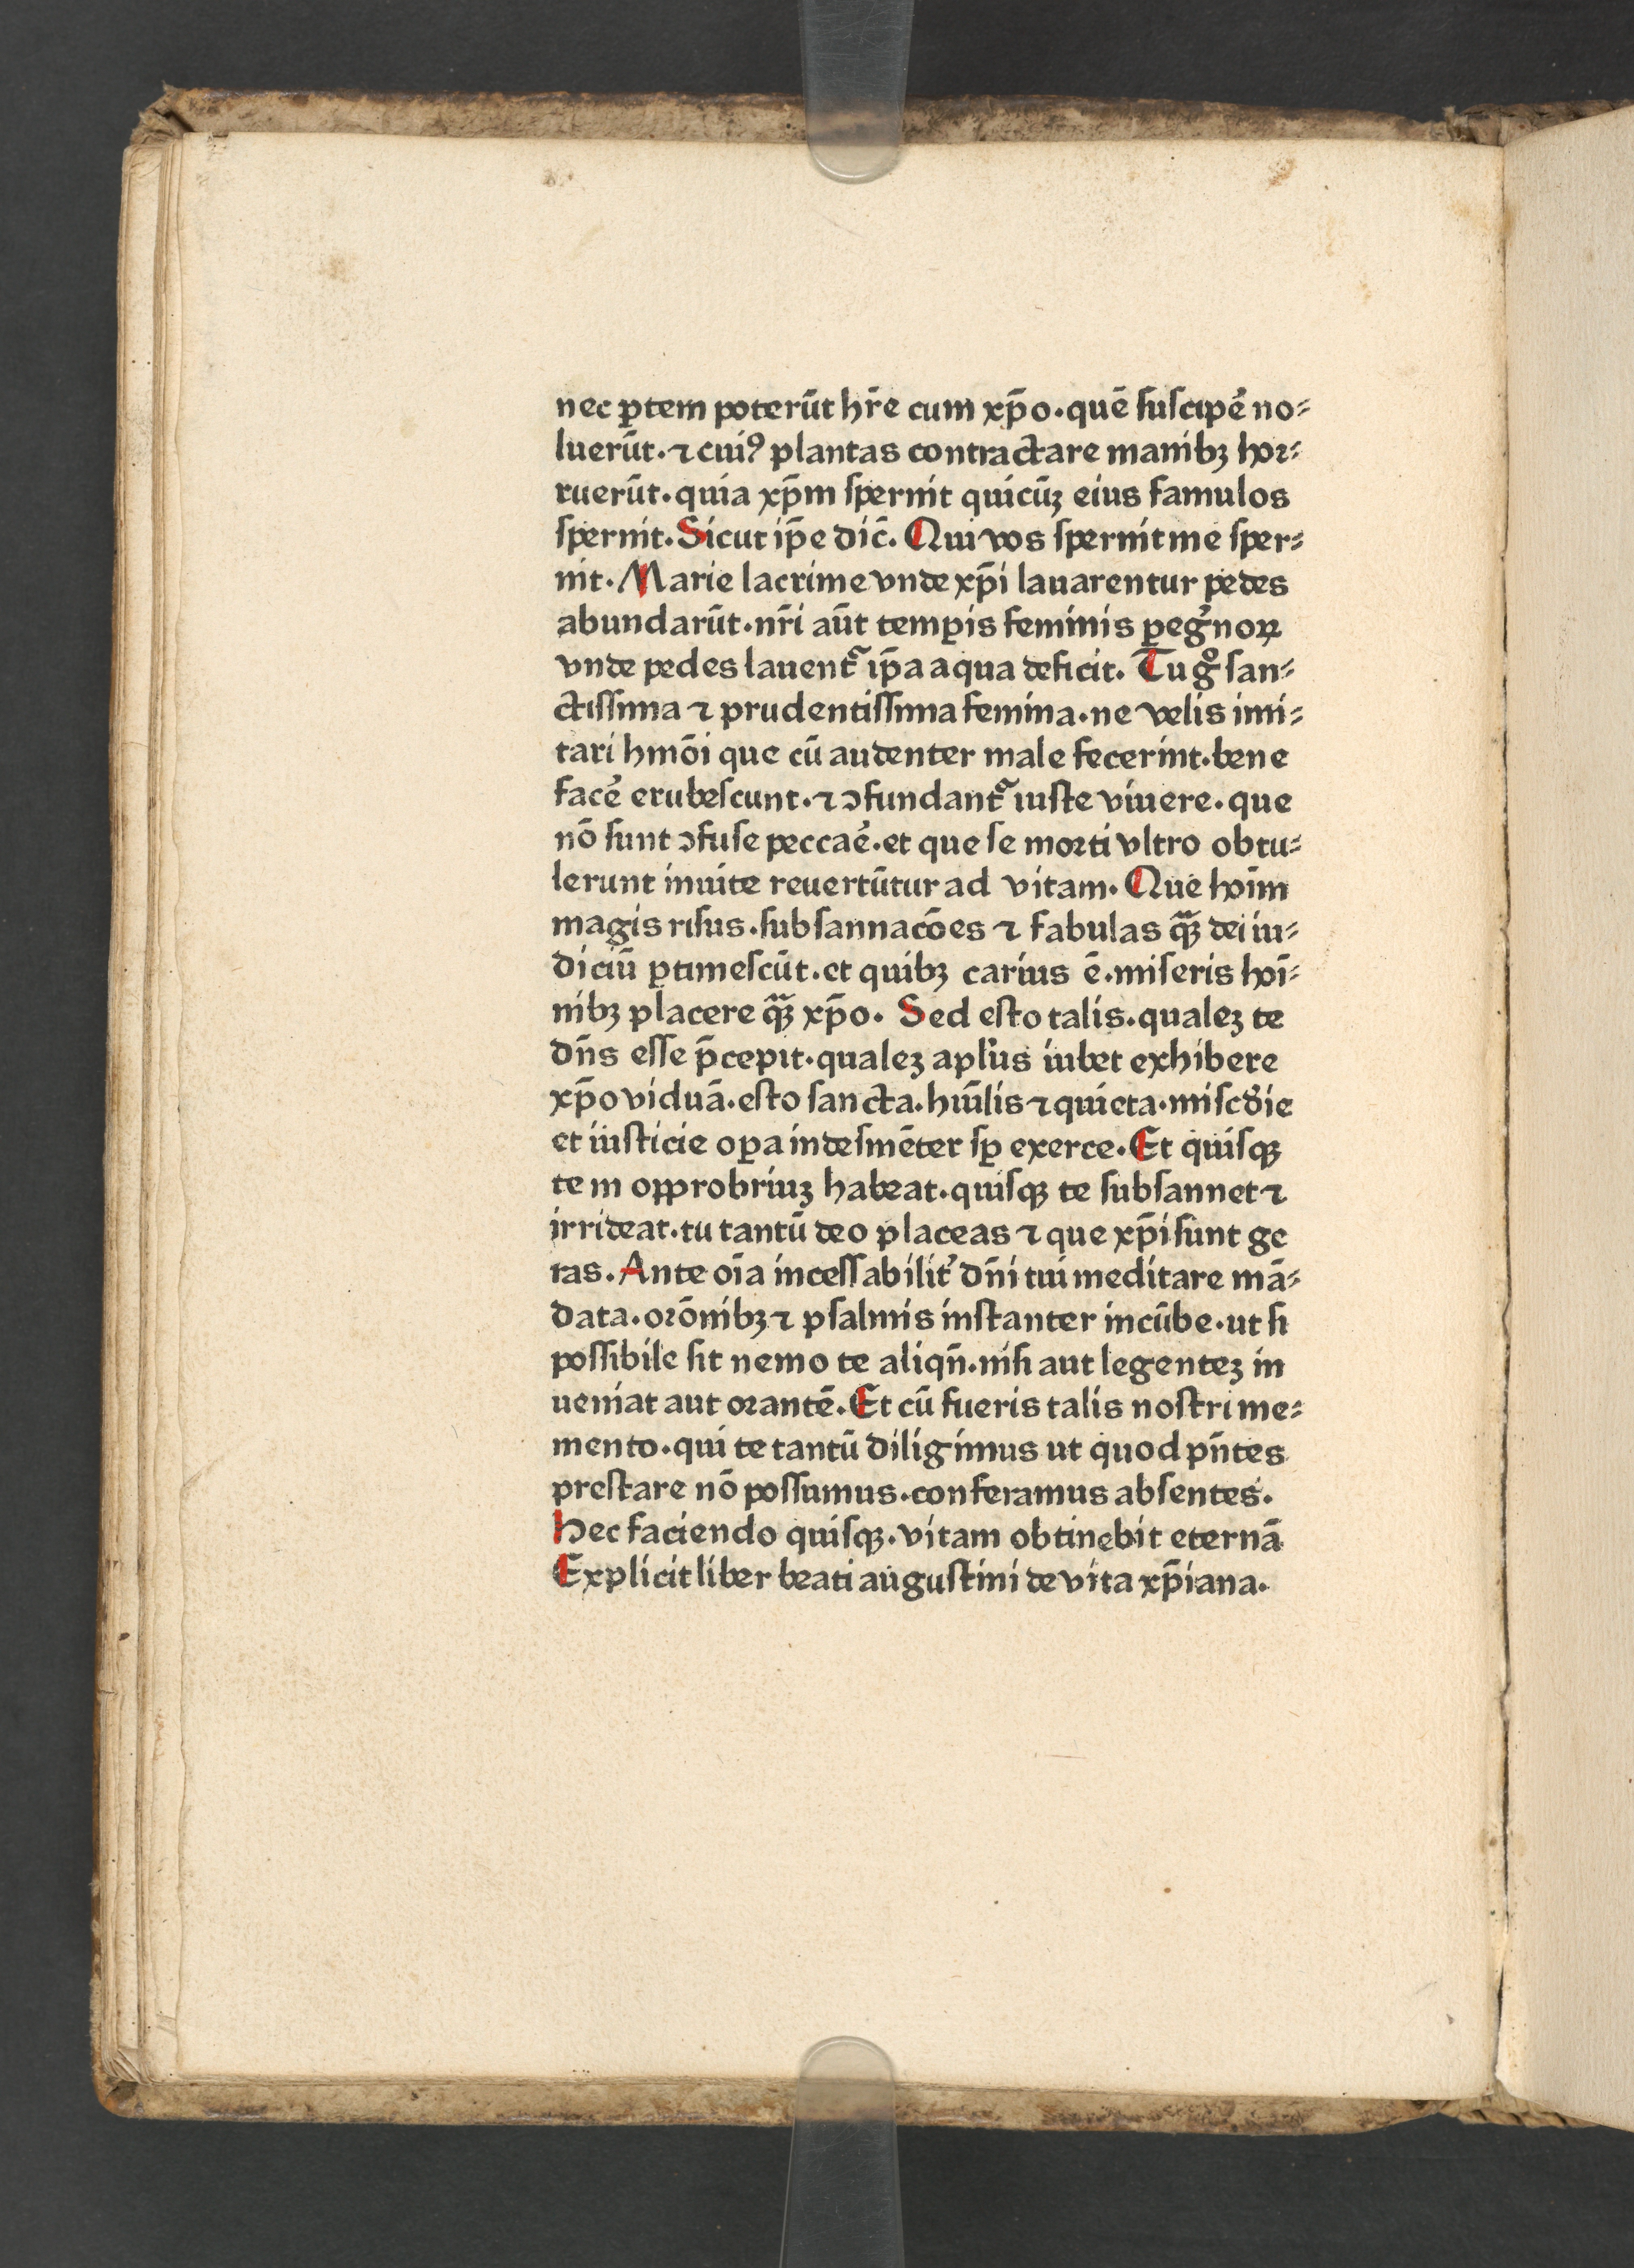 nec ꝑtem poterūt hr̄e cum xp̄o. quē ſuſcipe᷒ no⸗
luerūt. ⁊ cuiꝰ plantas contractare manibꝫ hoꝛ⸗
ruerūt. quia xp̄m ſpernit quicūꝫ eius famulos
ſpernit. Sicut ip̄e dic̄. Qui vos ſpernit me ſper⸗
nit. Marie lacrime vnde xp̄i lauarentur pedes
abundarūt. nr̄i aūt temꝑis feminis ꝑeg͛noꝝ
vnde pedes lauent᷑ ip̄a aqua deficit. Tu gͦ ſan⸗
ctiſſima ⁊ prudentiſſima femina. ne velis imi⸗
tari hmōi que cū audenter male fecerint. bene
face᷒ erubeſcunt. ⁊ ↄfundant᷑ iuſte viuere. que
nō ſunt ↄfuſe peccae᷒. et que ſe moꝛti vltro obtu⸗
lerunt inuite reuertūtur ad vitam. Que hoīm
magis riſus. ſubſannacōes ⁊ fabulas qᷓꝫ dei iu⸗
diciū ꝑtimeſcūt. et quibꝫ carius ē. miſeris hoī⸗
nibꝫ placere qᷓꝫ xp̄o. Sed eſto talis. qualeꝫ te
dn̄s eſſe p̄cepit. qualeꝫ apl'us iubet exhibere
xp̄o viduā. eſto ſancta. hūilis ⁊ quieta. miſcd͛ie
et iuſticie oꝑa indeſinēter ſꝑ exerce. Et quiſqꝫ
te in opprobriuꝫ habeat. quiſqꝫ te ſubſannet ⁊
irrideat. tu tantū deo placeas ⁊ que xp̄i ſunt ge
ras. Ante oīa inceſſabilit͛ dn̄i tui meditare mā⸗
data. oꝛōnibꝫ ⁊ pſalmis inſtanter incūbe. ut ſi
poſſibile ſit nemo te aliqn̄. niſi aut legenteꝫ in
ueniat aut oꝛantē. Et cū fueris talis noſtri me⸗
mento. qui te tantū diligimus ut quod pn̄tes
preſtare nō poſſumus. conferamus abſentes.
Hec faciendo quiſqꝫ. vitam obtinebit eternā
Explicit liber beati auguſtini de vita xp̄iana.